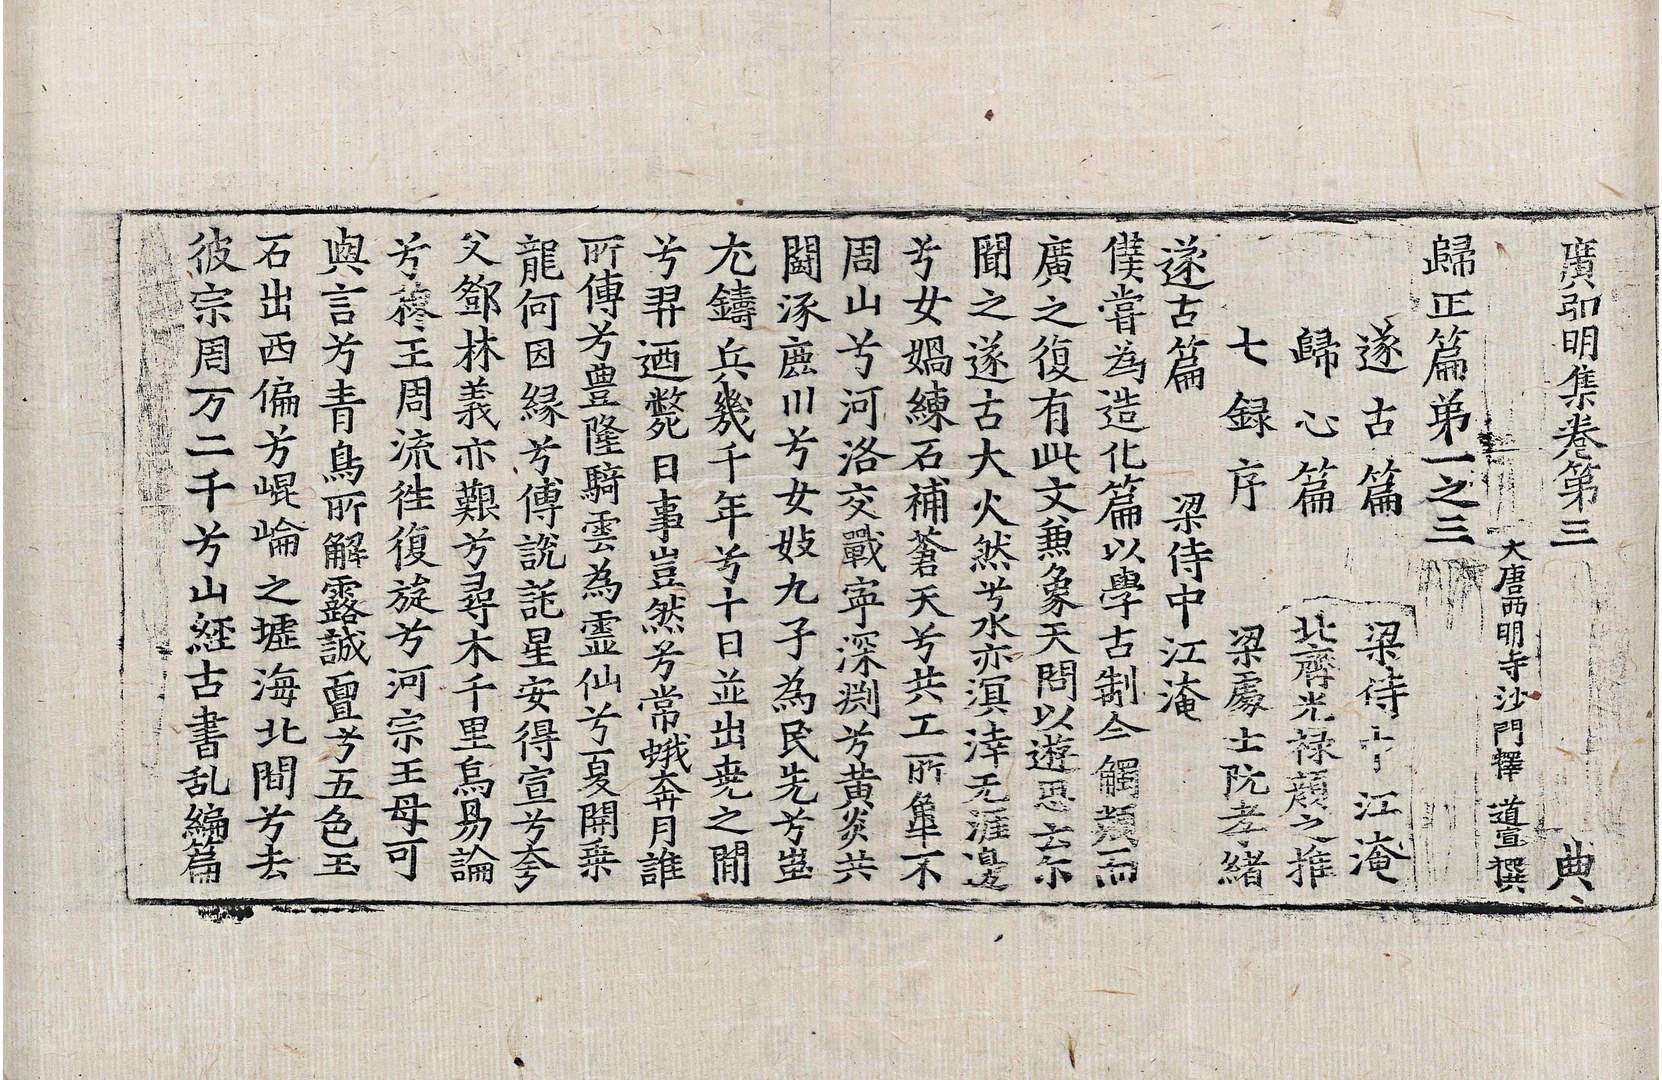 廣弘明集卷第三 典
大唐西明寺沙門釋 道宣撰
歸正篇第一之三
遂古篇 梁侍中江淹
歸心篇 北齊光祿顏之推
七録序 梁處士阮孝緒
遂古篇 梁侍中江淹
僕嘗為造化篇以學古制今觸類而
廣之復有此文兼象天問以遊思云尒
聞之遂古大火然兮水亦溟涬无涯邊
兮女媧練石補蒼天兮共工所觸不
周山兮河洛交戰寧深淵兮黃炎共
鬪涿鹿川兮女妭九子為民先兮蚩
尤鑄兵幾千年兮十日並出堯之間
兮羿迺斃日事豈然兮常娥奔月誰
所傳兮豐隆騎雲為靈仙兮夏開乗
龍何因緣兮傅說託星安得宣兮夸
父鄧林義亦艱兮尋木千里烏易論
兮穆王周流徃復旋兮河宗王母可
與言兮青鳥所解露誠亶兮五色玉
石出西偏兮崐崘之墟海北間兮去
彼宗周万二千兮山經古書乱編篇